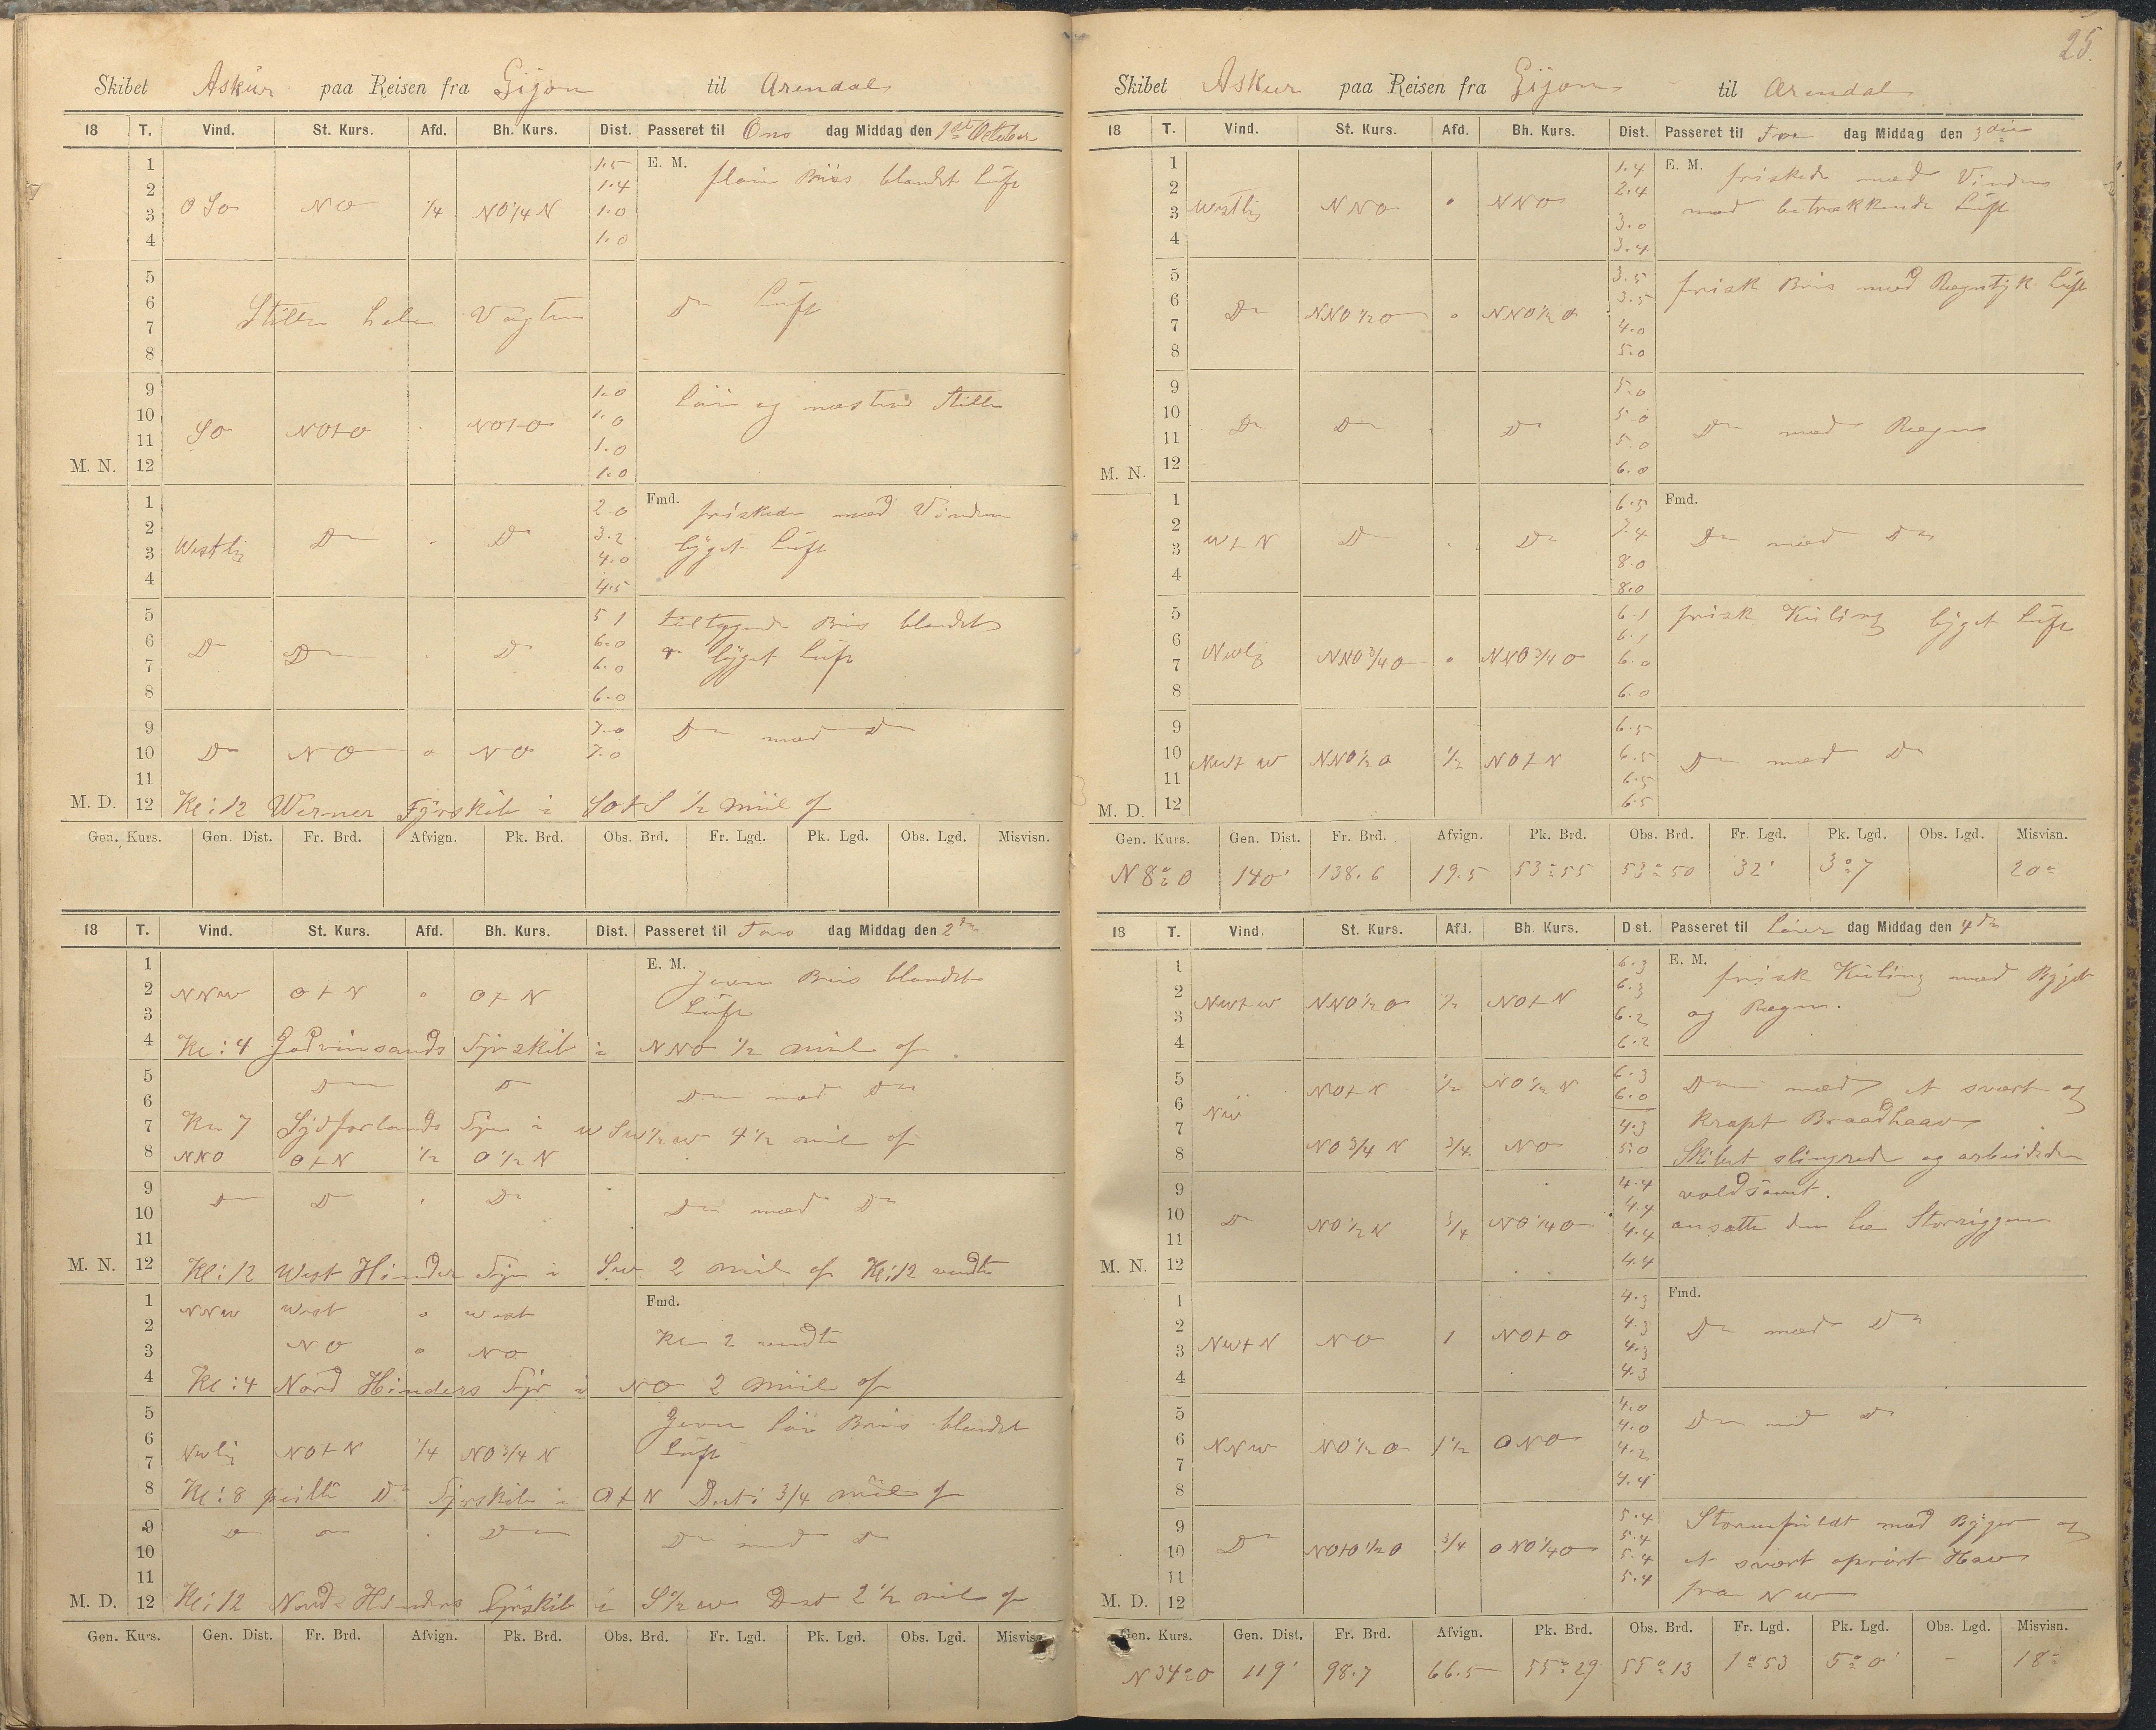 25.
Skibet Askur paa Reisen fra Gijon til Arendal
18 T. Vind. St. Kurs. Afd. Bh. Kurs. Dist. Passeret til Ons dag Middag den 1ste October
1 1.5 E. M. flaui Bris blandet Luft
2 1.4
3 O SO NO 1/4 NO 1/4 N 1.0
4 1.0
5
6 Stille hele Vagten Do Luft
7
8
9 1.0 Löi og næsten Stille
10 1.0
11 SO NOtO NOtO 1.0
M. N. 12 1.0
1 2.0 Fmd. friskede med Vinden
2 3.2 byget Luft
3 Westlig Do Do 4.0
4 4.5
5 5.1 tiltagende Bris blandet
6 Do Do Do 6.0 byget Luft
7 6.0
8 6.0
9 7.0 Do med Do
10 Do NO o NO 7.0
11
M. D. 12 Kl: 12 Werner Fyrskib i SOtS 1/2 miil af
Gen. Kurs. Gen. Dist. Fr. Brd. Afvign. Pk. Brd. Obs. Brd. Fr. Lgd. Pk. Lgd. Obs. Lgd. Misvisn.
18 T. Vind. St. Kurs. Afd. Bh. Kurs. Dist. Passeret til Tors dag Middag den 2den
1 E. M. Jevn Bris blandet
2 NNW OtN o OtN Luft
3
4 Kl: 4 Godvinsands Fyrskib i NNO 1/2 miil af
5 Do Do Do med Do
6
7 Kl 7 Sydforlands Fyr i WSW 1/2 W 4 1/2 mil af
8 NNO OtN 1/2 O 1/2 N
9 Do Do Do Do med Do
10
11
M. N. 12 Kl: 12 West Hinder Fyr i SW 2 mil af Kl: 12 vendte
1 NNW West o West Fmd.
2 Kl 2 vendte
3 NO o NO
4 Kl: 4 Nord Hinders Fyr i NO 2 miil af
5 Jevn Löi Bris blandet
6 NWlig NOtN 1/4 NO 3/4 N Luft
7
8 Kl: 8 peilte Do Fyrskib i OtN Dist: 3/4 miil af
9 Do Do Do Do med Do
10
11
M. D. 12 Kl: 12 Nord Hinders Fyrskib i S 1/2 W Dist 2 1/2 mil af
Gen. Kurs. Gen. Dist. Fr. Brd. Afvign. Pk. Brd. Obs. Brd. Fr. Lgd. Pk. Lgd. Obs. Lgd. Misvisn.
Skibet Askur paa Reisen fra Gijon til Arendal
18 T. Vind. St. Kurs. Afd. Bh. Kurs. Dist. Passeret til Fre dag Middag den 3die
1 1.4 E. M. friskede med Vinden
2 2.4 med betrækkende Luft
3 Westlig NNO o NNO 3.0
4 3.4
5 3.5 frisk Bris med Regntyk Luft
6 3.5
7 Do NNO 1/2 O o NNO 1/2 O 4.0
8 5.0
9 5.0
10 Do Do Do 5.0 Do med Regn
11 5.0
M. N. 12 6.0
1 6.5 Fmd.
2 7.4 Do med Do
3 WtN Do Do 8.0
4 8.0
5 6.1 frisk Kuling byget Luft
6 6.1
7 NWlig NNO 3/4 O o NNO 3/4 O 6.0
8 6.0
9 6.5
10 NWtW NNO 1/2 O 1/2 NOtN 6.5 Do med Do
11 6.5
M. D. 12 6.5
Gen. Kurs. Gen. Dist. Fr. Brd. Afvign. Pk. Brd. Obs. Brd. Fr. Lgd. Pk. Lgd. Obs. Lgd. Misvisn.
N 8° O 140' 138.6 19.5 53° 55 53° 50 32' 3° 7 20°
18 T. Vind. St. Kurs. Afd. Bh. Kurs. Dist. Passeret til Löver dag Middag den 4de
1 6.3 E. M. frisk Kuling med Byger
2 6.3 og Regn.
3 NWtW NNO 1/2 O 1/2 NOtN 6.2
4 6.2
5 NOtN 1/2 NO 1/2 N 6.3 Do med et svært og
6 NW 6.0 krapt Braadhaav
7 4.3
8 NO 3/4 N 3/4 NO 5.0 Skibet slingrede og arbeidede
9 4.4 voldsomt.
10 Do NO 1/2 N 3/4 NO 1/4 O 4.4 ansatte den Læ Storriggen
11 4.4
M. N. 12 4.4
1 4.3 Fmd.
2 4.3 Do med Do
3 NWtN NO 1 NOtO 4.3
4 4.3
5 4.0 Do med Do
6 NNW NO 1/2 O 1 1/2 ONO 4.0
7 4.2
8 4.4
9 5.4 Stormfuldt med Byger og
10 Do NOtO 1/2 O 3/4 ONO 1/4 O 5.4 et svært oprört Hav
11 5.4 fra NW
M. D. 12 5.4
Gen. Kurs. Gen. Dist. Fr. Brd. Afvign. Pk. Brd. Obs. Brd. Fr. Lgd. Pk. Lgd. Obs. Lgd. Misvisn.
N 34° O 119' 98.7 66.5 55° 29 55° 13 1° 53 5° 0' - 18°